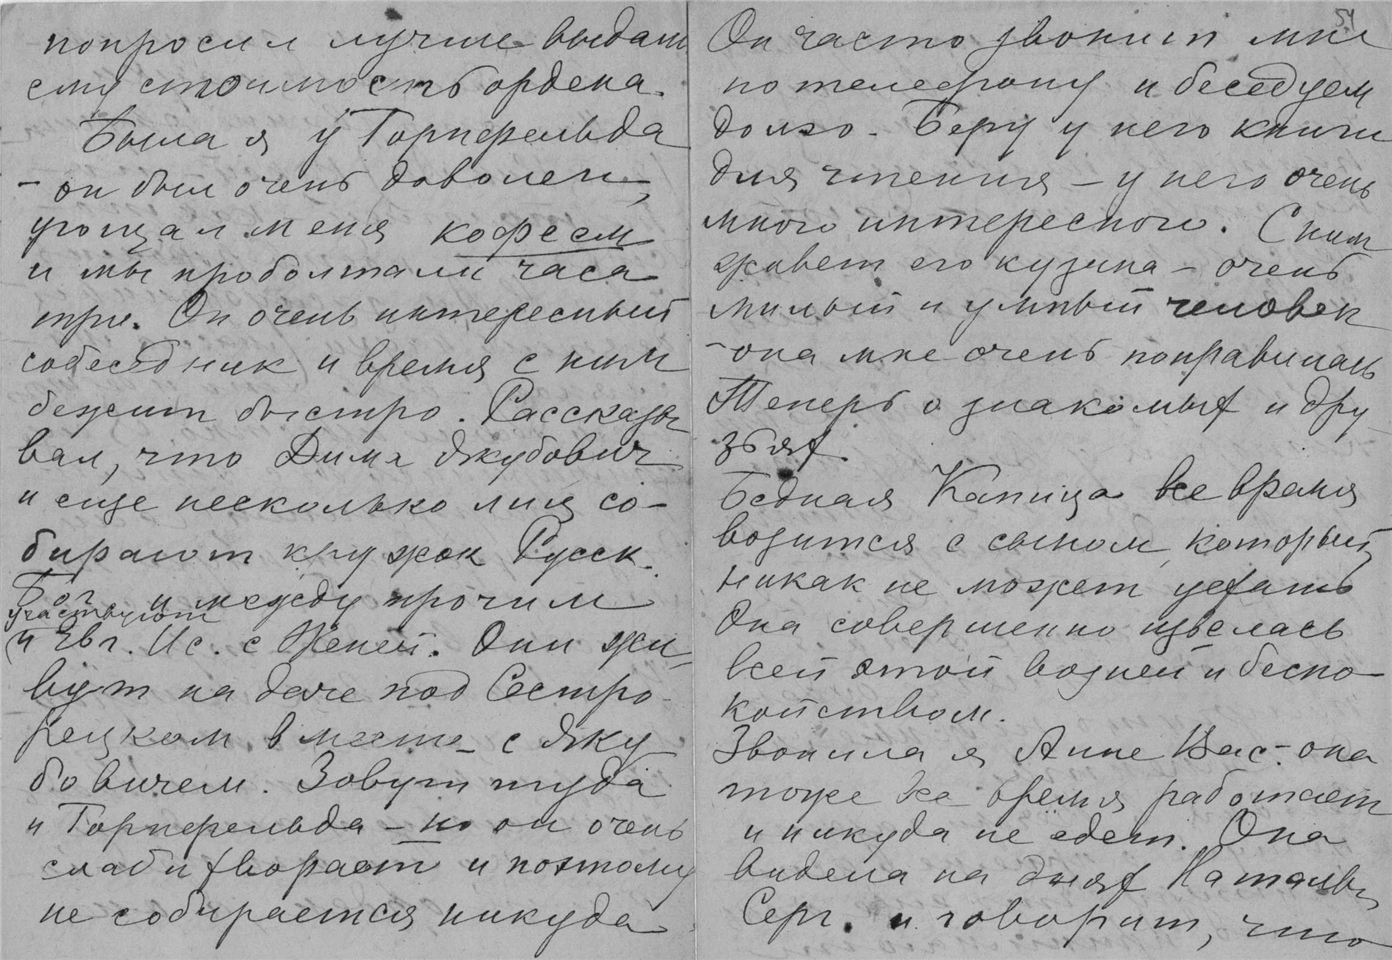 попросил лучше выдать
ему стоимость ордена.
Была я у Горнфельда
– он был очень доволен,
угощал меня кофеем
и мы проболтали часа
три. Он очень интересный
собеседник и время с ним
бежит быстро. Рассказы
вал, что Дима Якубович
и еще несколько лиц со-
бирают кружок Русск.
Бог. и между прочим
участвуют
(и Евг. Ис. с Женей. Они жи-
вут на даче под Сестро-
рецком вместе с Яку
бовичем. Зовут туда
и Горнфельда – но он очень
слаб и хворает и поэтому
не собирается никуда
54
Он часто звонит мне
по телефону и беседуем
долго. Беру у него книги
для чтения – у него очень
много интересного. С ним
живет его кузина – очень
милый и умный человек
– она мне очень понравилась
Теперь о знакомых и дру-
зьях.
Бедная Капица все время
возится с сыном, который
никак не может уехать
Она совершенно извелась
всей этой возней и беспо-
койством.
Звонила я Анне Вас. – она
тоже все время работает
и никуда не едет. Она
видела на днях Наталью
Серг. и говорит, что